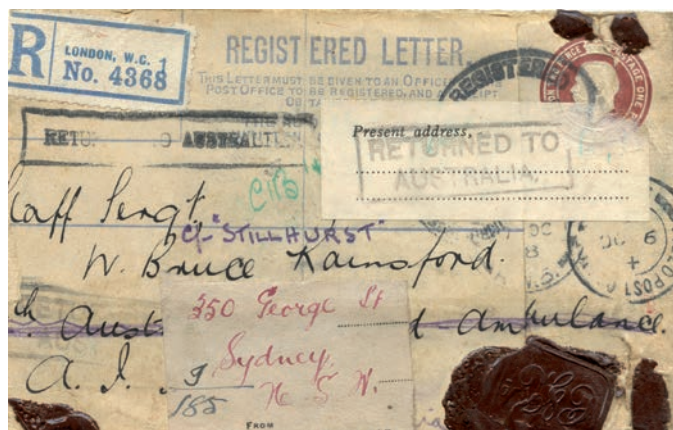 R
LONDON, W.C. 1
No. 4368
REGISTERED LETTER.
THIS LETTER MUST BE GIVEN TO AN OFFICER
POST OFFICE TO BE REGISTERED, AND A RECEIPT
REGISTERED
POSTAGE ONE
AUSTRALIA.
Present address,
RETURNED TO
AUSTRALIA.
Staff Sergt
C/- "STILLHURST"
W. Bruce Rainsford.
Aust Ambulance.
A. I.
350 George St
Sydney
N. S. W.
185
FROM